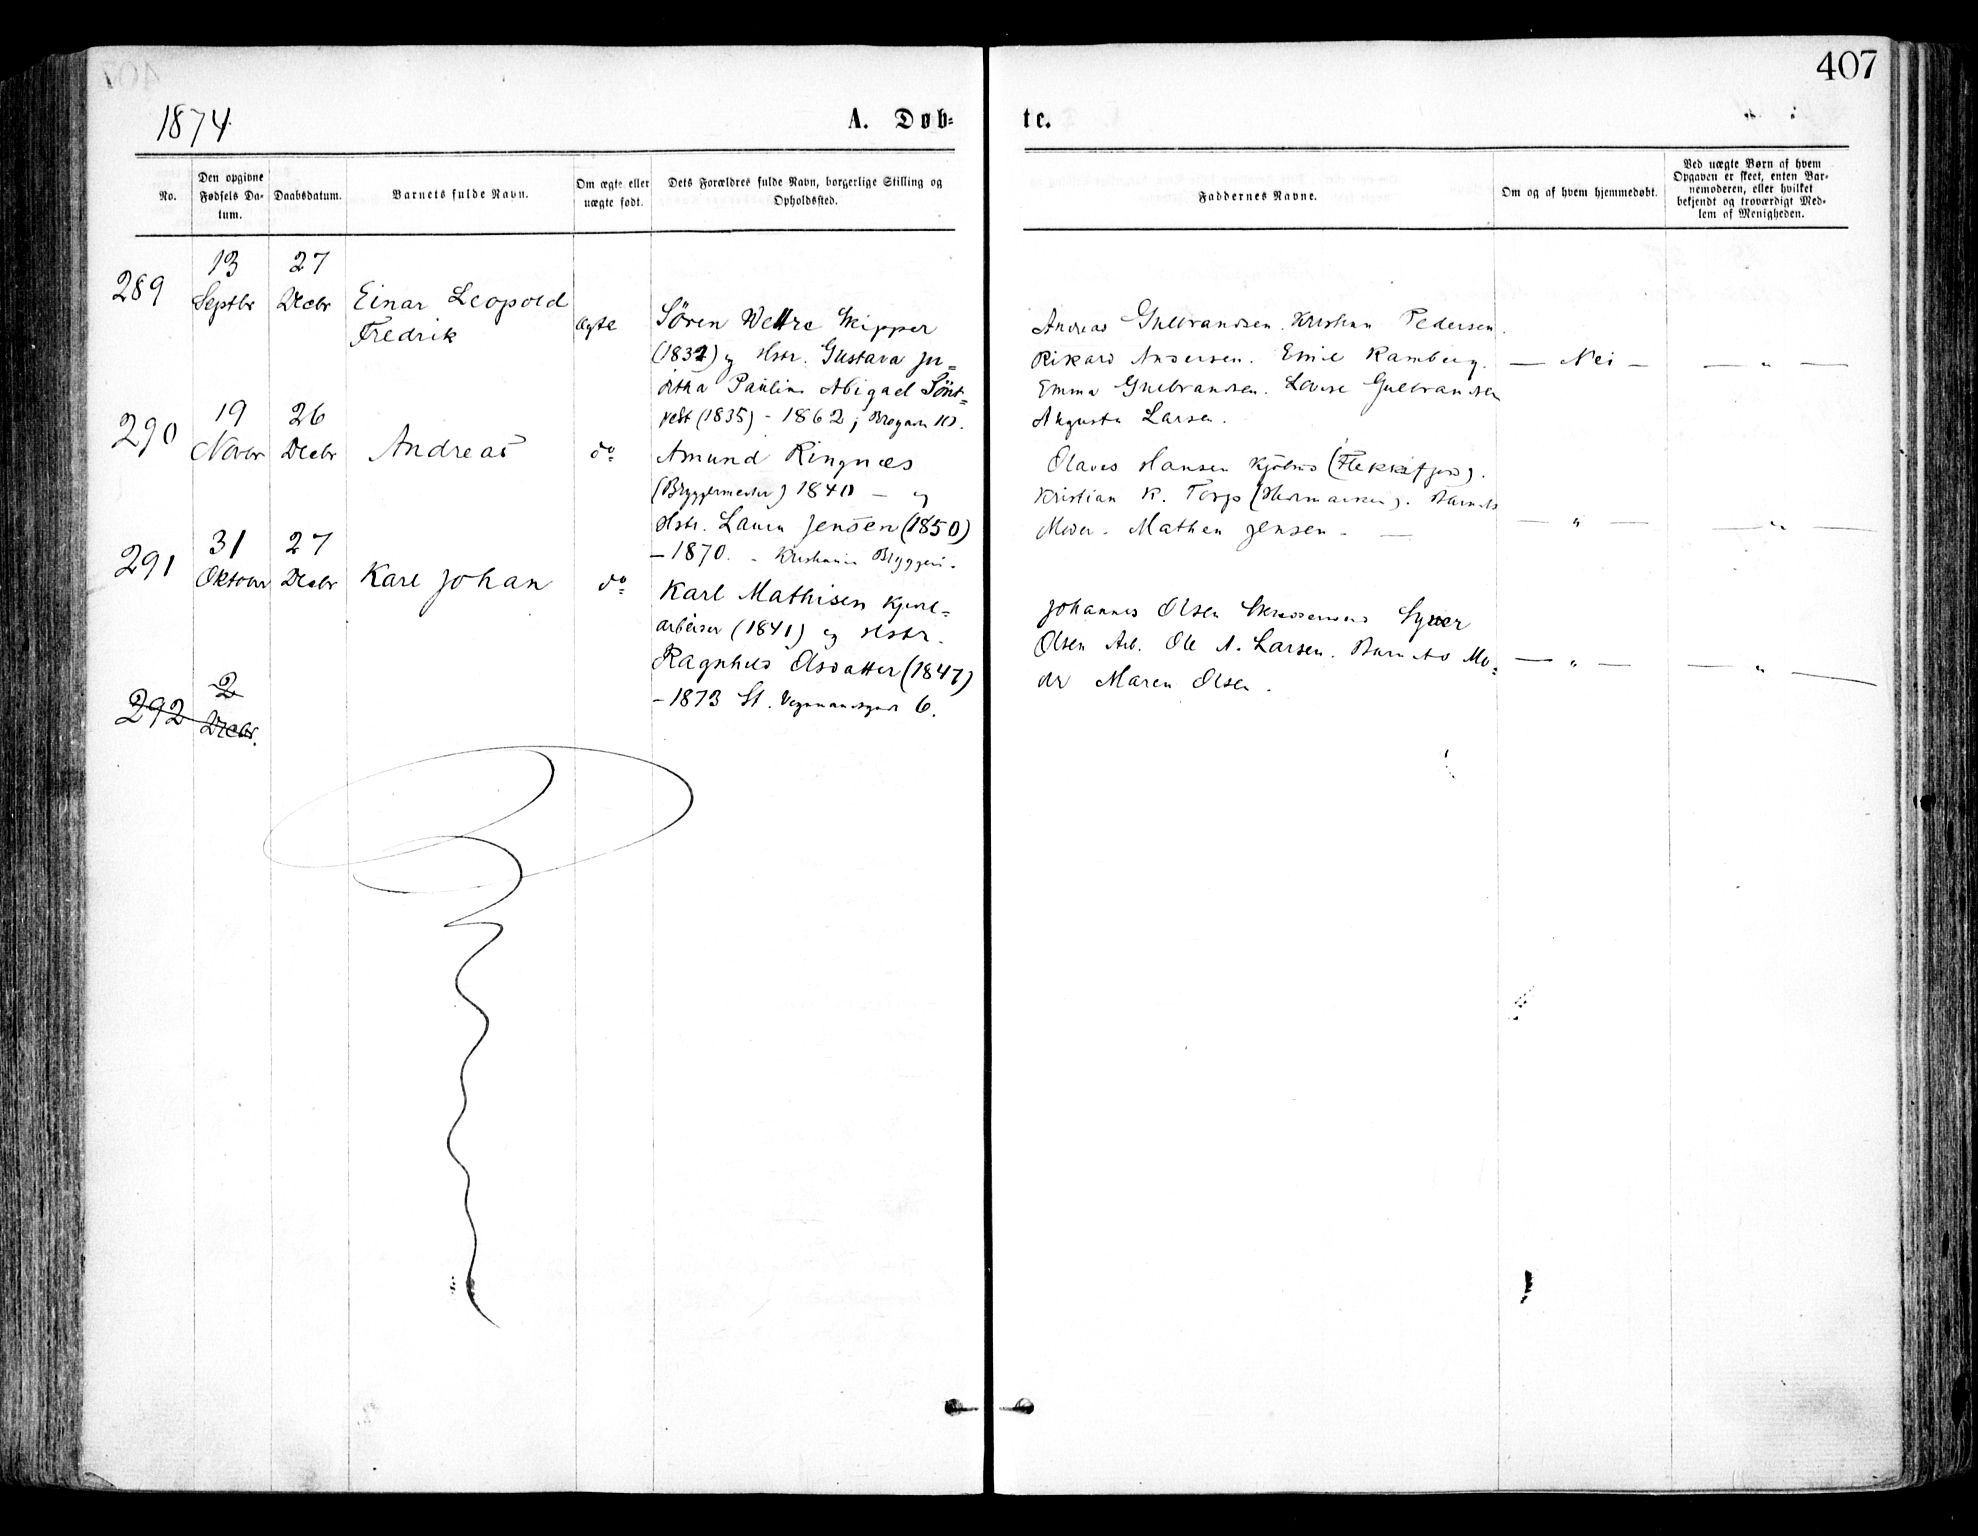 407
1874
A. Døb-
te.
No.
Den opgivne
Fødsels Da-
tum.
Daabsdatum.
Barnets fulde Navn.
Om ægte eller
uægte født.
Dets Forældres fulde Navn, borgerlige Stilling og
Opholdssted.
Faddernes Navne.
Om og af hvem hjemmedøbt.
Ved uægte Børn af hvem
Opgaven er skeet, enten Bar-
nemoderen, eller hvilket
bekjendt og troværdigt Med-
lem af Menigheden.
289
13
Septbr
27
Decbr
Einar Leopold
Fredrik
ægte
Søren Wettre Skipper
(1832) og Hstr. Gustava Ju-
ditha Pauline Abigael
(1835) - 1862;
Andreas Gulbrandsen. Kristian Pedersen.
Rikard Andersen. Emil Ramberg.
Emma Gulbrandsen. Lovise Gulbrandsen
Augusta Larsen.
— Nei —
— " —
290
19
Novbr
26
Decbr
Andreas
do
Amund Ringnæs
(Bryggermester) 1840 — og
Hstr. Laura Jensen (1850)
- 1870. - Kristiania Bryggeri.
Olaves Hansen (Flekkefjord).
Kristian K. Torp. Barnets
Moder. Mathea Jensen. —
— " —
— " —
291
31
Oktober
27
Decbr
Karl Johan
do
Karl Mathisen Kjøre-
arbeider (1841) og Hstr.
Ragnhild Olsdatter (1847)
- 1873 St. 6.
Johannes Olsen Skrædersvend
Olsen Arb. Ole A. Larsen. Barnets Mo-
der Maren Olsen.
— " —
— " —
292
2
Decbr.